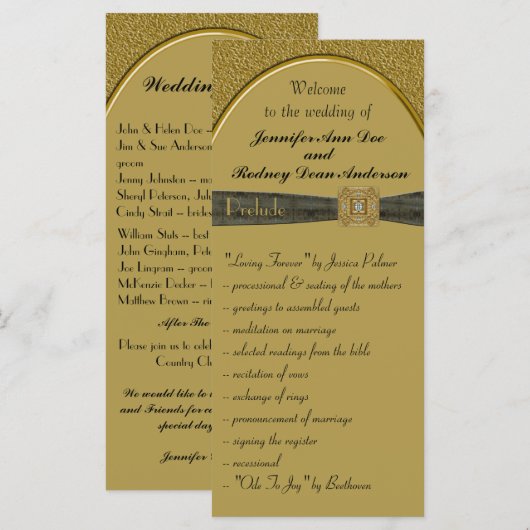 Wedding
John & Helen Doe --
Jim & Sue Anderson
groom
Jenny Johnston -- m
Sheryl Peterson, Jul
Cindy Strait -- brides
William Stuts -- best
John Gingham, Pete
Joe Lingram -- groom
McKenzie Decker -- f
Matthew Brown -- rin
After The
Please join us to celeb
Country Clu
We would like to t
and Friends for co
special day
Jennifer
Welcome
to the wedding of
Jennifer Ann Doe
and
Rodney Dean Anderson
Prelude
"Loving Forever" by Jessica Palmer
-- processional & seating of the mothers
-- greetings to assembled guests
-- meditation on marriage
-- selected readings from the bible
-- recitation of vows
-- exchange of rings
-- pronouncement of marriage
-- signing the register
-- recessional
-- "Ode To Joy" by Beethoven